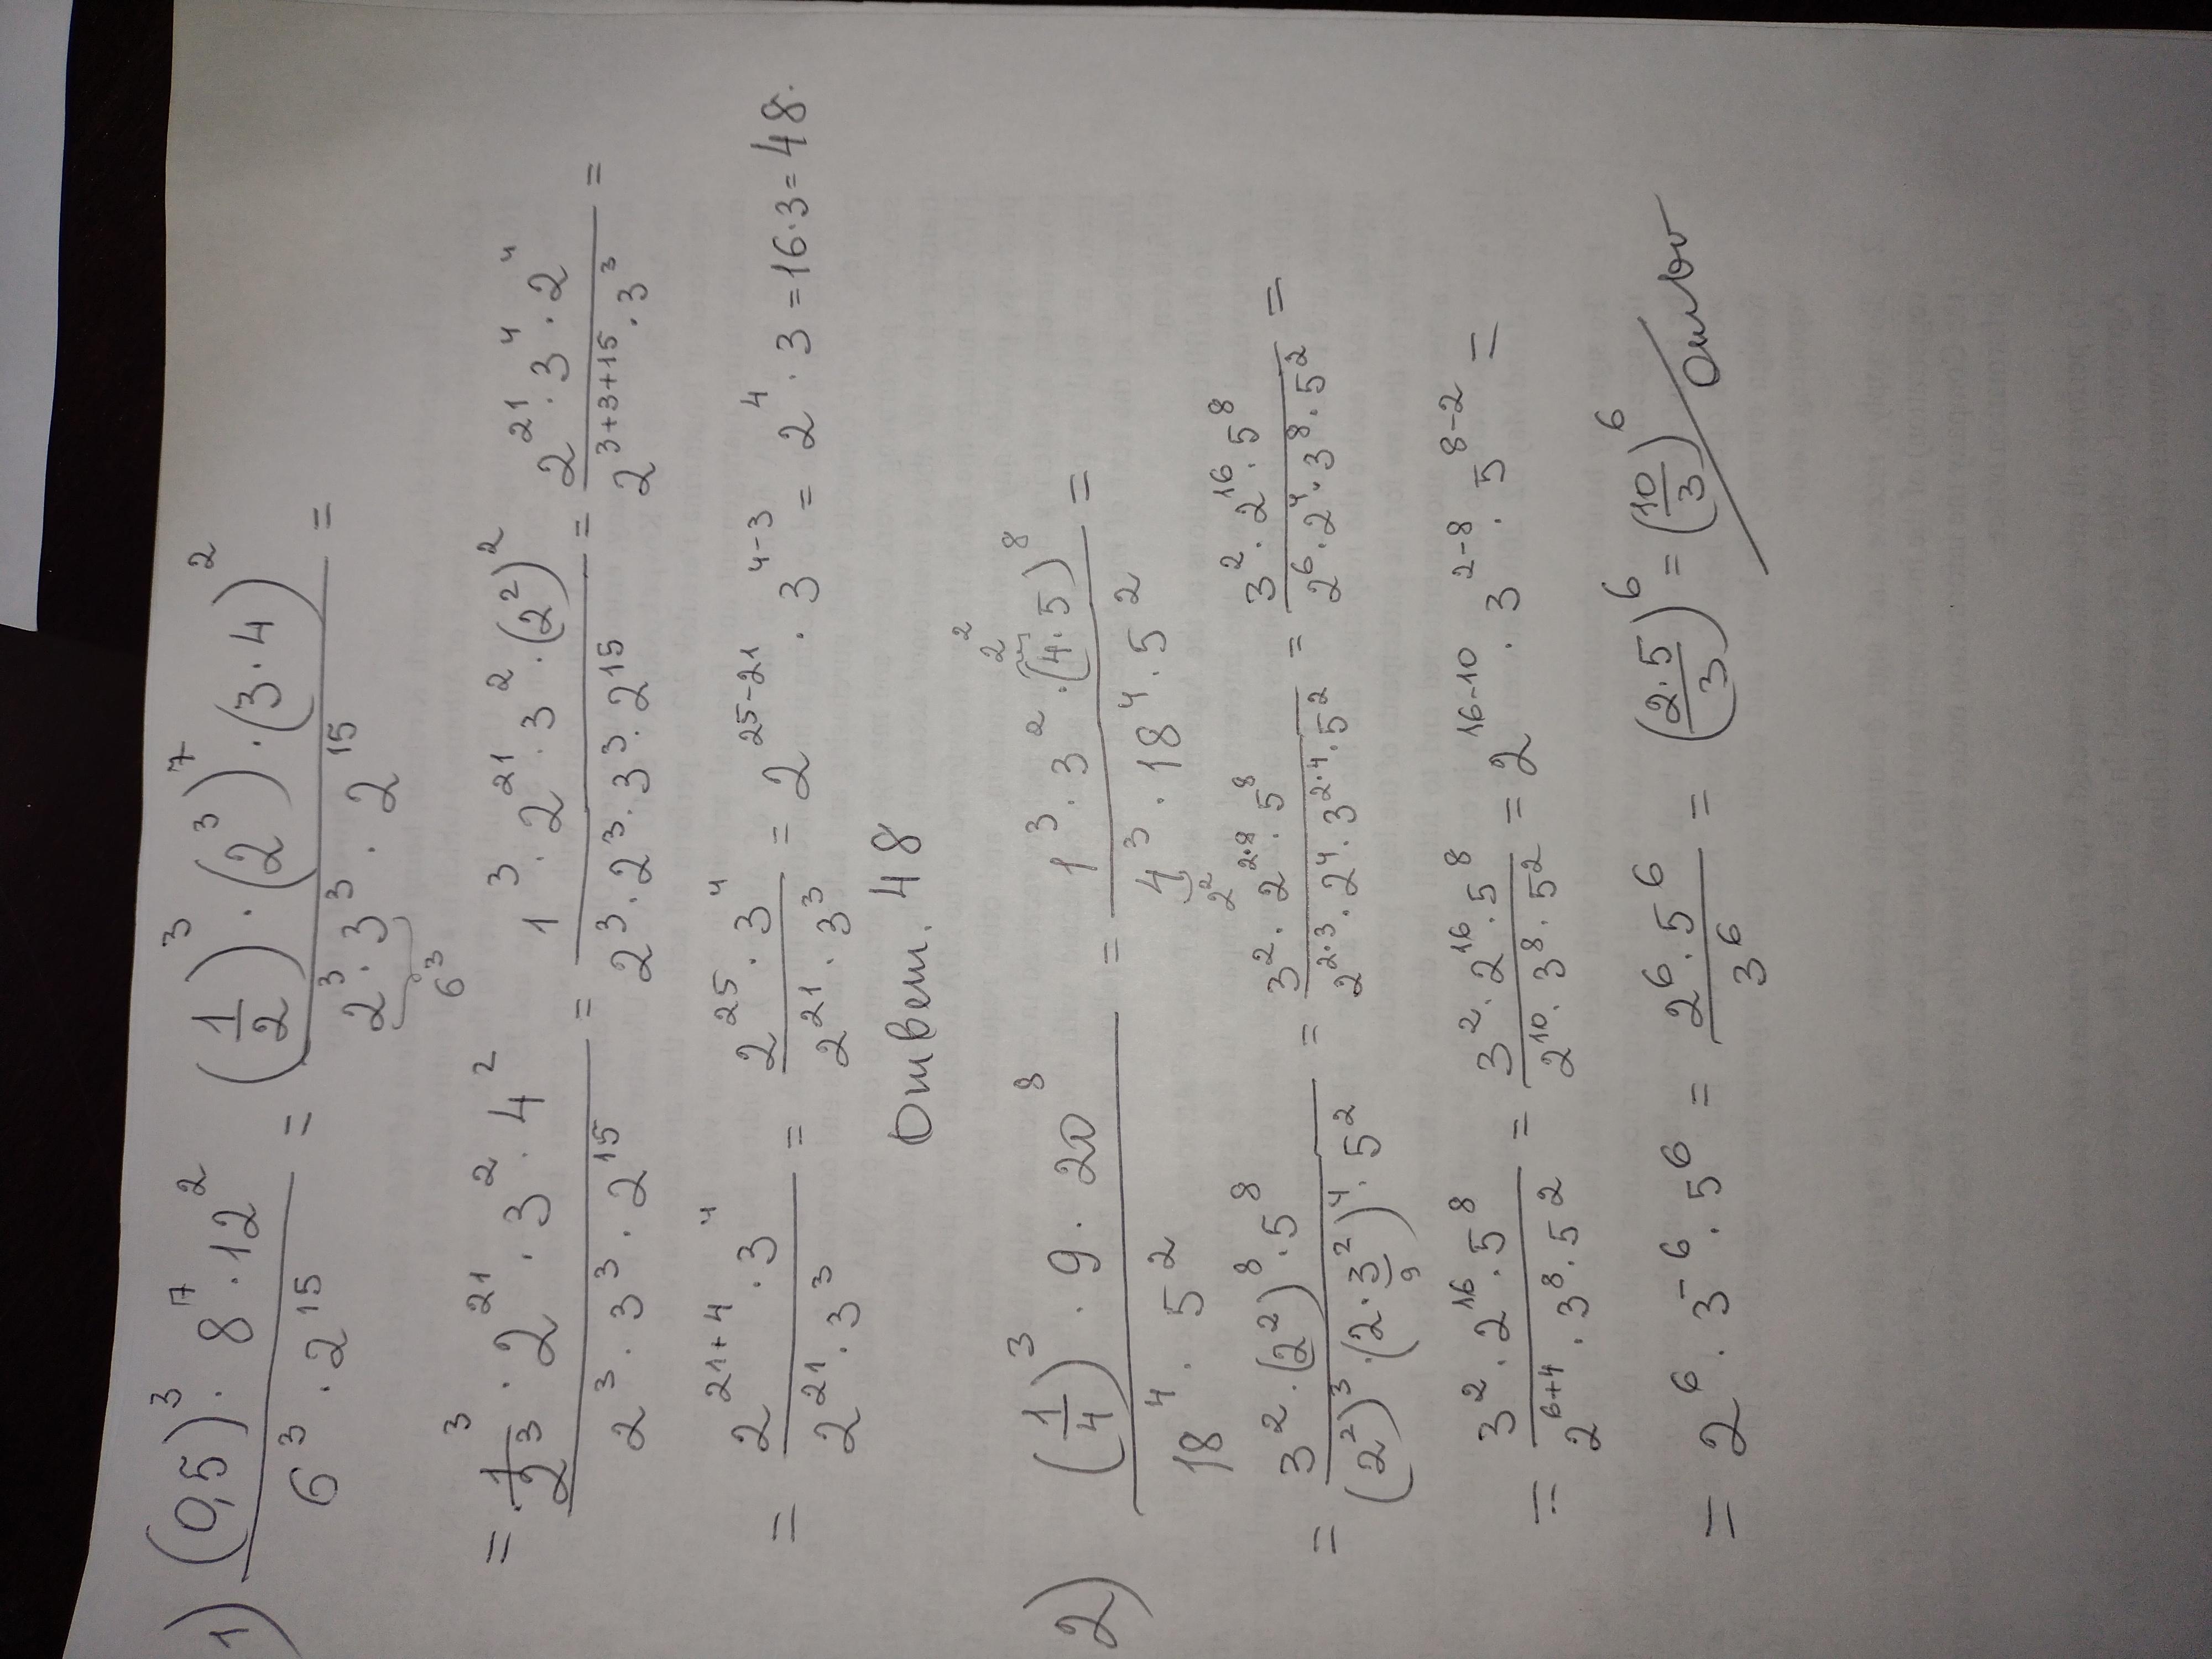 1) \frac{(0,5)^3 \cdot 8^7 \cdot 12^2}{6^3 \cdot 2^{15}} = \frac{(\frac{1}{2})^3 \cdot (2^3)^7 \cdot (3 \cdot 4)^2}{\underbrace{2^3 \cdot 3^3}_{6^3} \cdot 2^{15}} =
= \frac{\frac{1^3}{2^3} \cdot 2^{21} \cdot 3^2 \cdot 4^2}{2^3 \cdot 3^3 \cdot 2^{15}} = \frac{1^3 \cdot 2^{21} \cdot 3^2 \cdot (2^2)^2}{2^3 \cdot 2^3 \cdot 3^3 \cdot 2^{15}} = \frac{2^{21} \cdot 3^4 \cdot 2^4}{2^{3+3+15} \cdot 3^3} =
= \frac{2^{21+4} \cdot 3^4}{2^{21} \cdot 3^3} = \frac{2^{25} \cdot 3^4}{2^{21} \cdot 3^3} = 2^{25-21} \cdot 3^{4-3} = 2^4 \cdot 3 = 16 \cdot 3 = 48.
Ответ. 48
2) \frac{(\frac{1}{4})^3 \cdot 9 \cdot 20^8}{18^4 \cdot 5^2} = \frac{1^3 \cdot 3^2 \cdot (\overbrace{4}^{2^2} \cdot 5)^8}{\underbrace{4^3}_{2^2} \cdot 18^4 \cdot 5^2} =
= \frac{3^2 \cdot (2^2)^8 \cdot 5^8}{(2^2)^3 \cdot (2 \cdot \underbrace{3^2}_{9})^4 \cdot 5^2} = \frac{3^2 \cdot 2^{2 \cdot 8} \cdot 5^8}{2^{2 \cdot 3} \cdot 2^4 \cdot 3^{2 \cdot 4} \cdot 5^2} = \frac{3^2 \cdot 2^{16} \cdot 5^8}{2^6 \cdot 2^4 \cdot 3^8 \cdot 5^2} =
= \frac{3^2 \cdot 2^{16} \cdot 5^8}{2^{6+4} \cdot 3^8 \cdot 5^2} = \frac{3^2 \cdot 2^{16} \cdot 5^8}{2^{10} \cdot 3^8 \cdot 5^2} = 2^{16-10} \cdot 3^{2-8} \cdot 5^{8-2} =
= 2^6 \cdot 3^{-6} \cdot 5^6 = \frac{2^6 \cdot 5^6}{3^6} = (\frac{2 \cdot 5}{3})^6 = (\frac{10}{3})^6 /